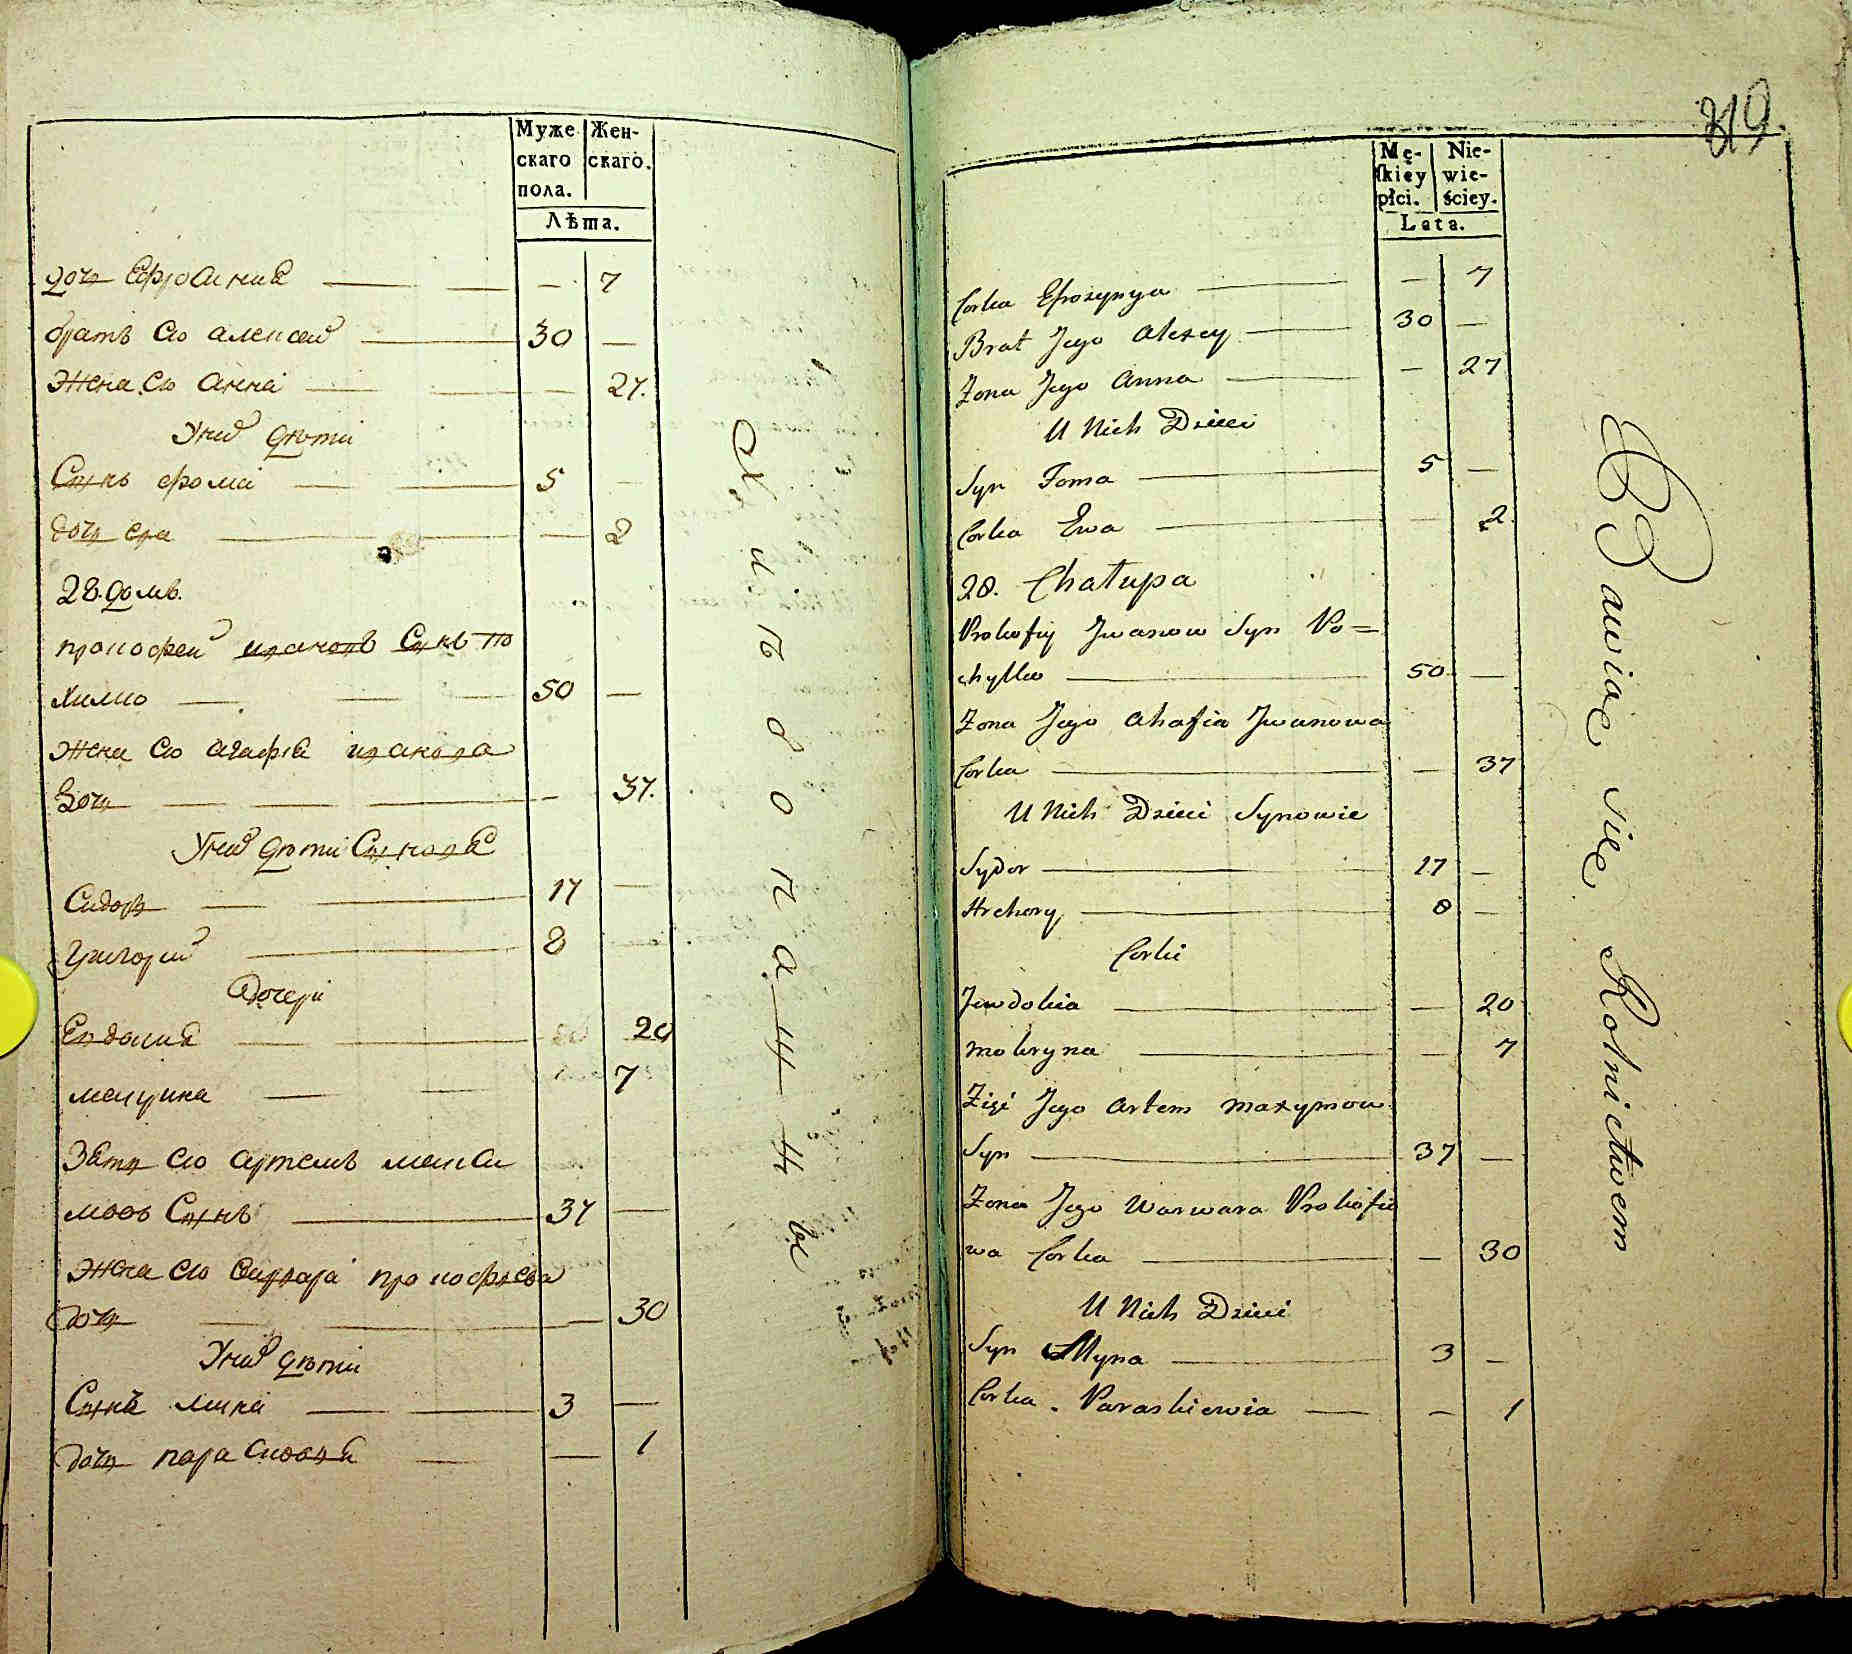 Муже Жен-
скаго скаго.
пола.
Лѣта.
дочь Ефросиния — 7
братъ его алексей 30 —
жена его анна — 27.
У них дѣти
Сынъ фома 5 —
дочь ева — 2
28. домъ.
прокофей ивановъ Сынъ по
хилко 50 —
жена его агафия иванова
дочь — 37.
У них дѣти Сыновя
Сидоръ 17 —
григорий 8
дочери
Евдокия 20
макрина 7
зять его артемъ макси
мовъ Сынъ 37 —
жена его варвара прокофьева
дочь — 30
У них дѣти
Сынъ мина 3 —
дочь парасковия — 1
Хлебопашцы
319.
Mę- Nie-
skiey wie-
płci. ściey.
Lata.
Corka Efrozynya — 7
Brat Jego Alexey 30 —
Żona Jego Anna — 27
U Nich Dzieci
Syn Foma 5 —
Corka Ewa — 2
28. Chałupa
Prokofiy Jwanow Syn Po=
chyłko 50 —
Żona Jego Ahafia Jwanowa
Corka — 37
U Nich Dzieci Synowie
Sydor 17 —
Hrehory 8 —
Corki
Jewdokia — 20
Mokryna — 7
Zięć Jego Artem Maxymow
Syn 37 —
Żona Jego Warwara Prokofie
wa Corka — 30
U Nich Dzieci
Syn Myna 3 —
Corka Paraskiewia — 1
Bawiąc się Rolnictwem